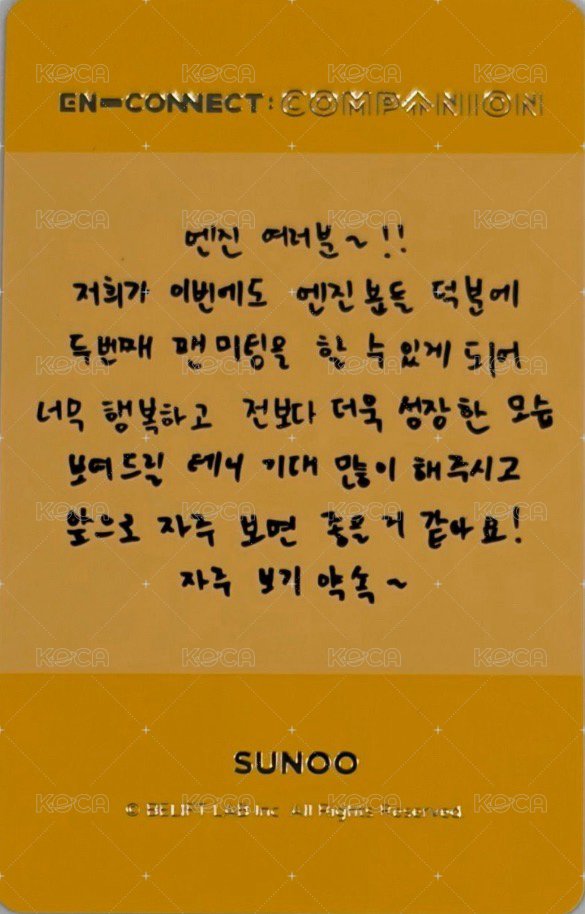 EN-CONNECT: COMPANION
엔진 여러분~!!
저희가 이번에도 엔진분들 덕분에
두번째 팬미팅을 할 수 있게 되어
너무 행복하고 전보다 더욱 성장한 모습
보여드릴 테니 기대 많이 해주시고
앞으로 자주 보면 좋을 거 같아요!
자주 보기 약속~
SUNOO
© BELIFT LAB Inc. All Rights Reserved.
KOCA